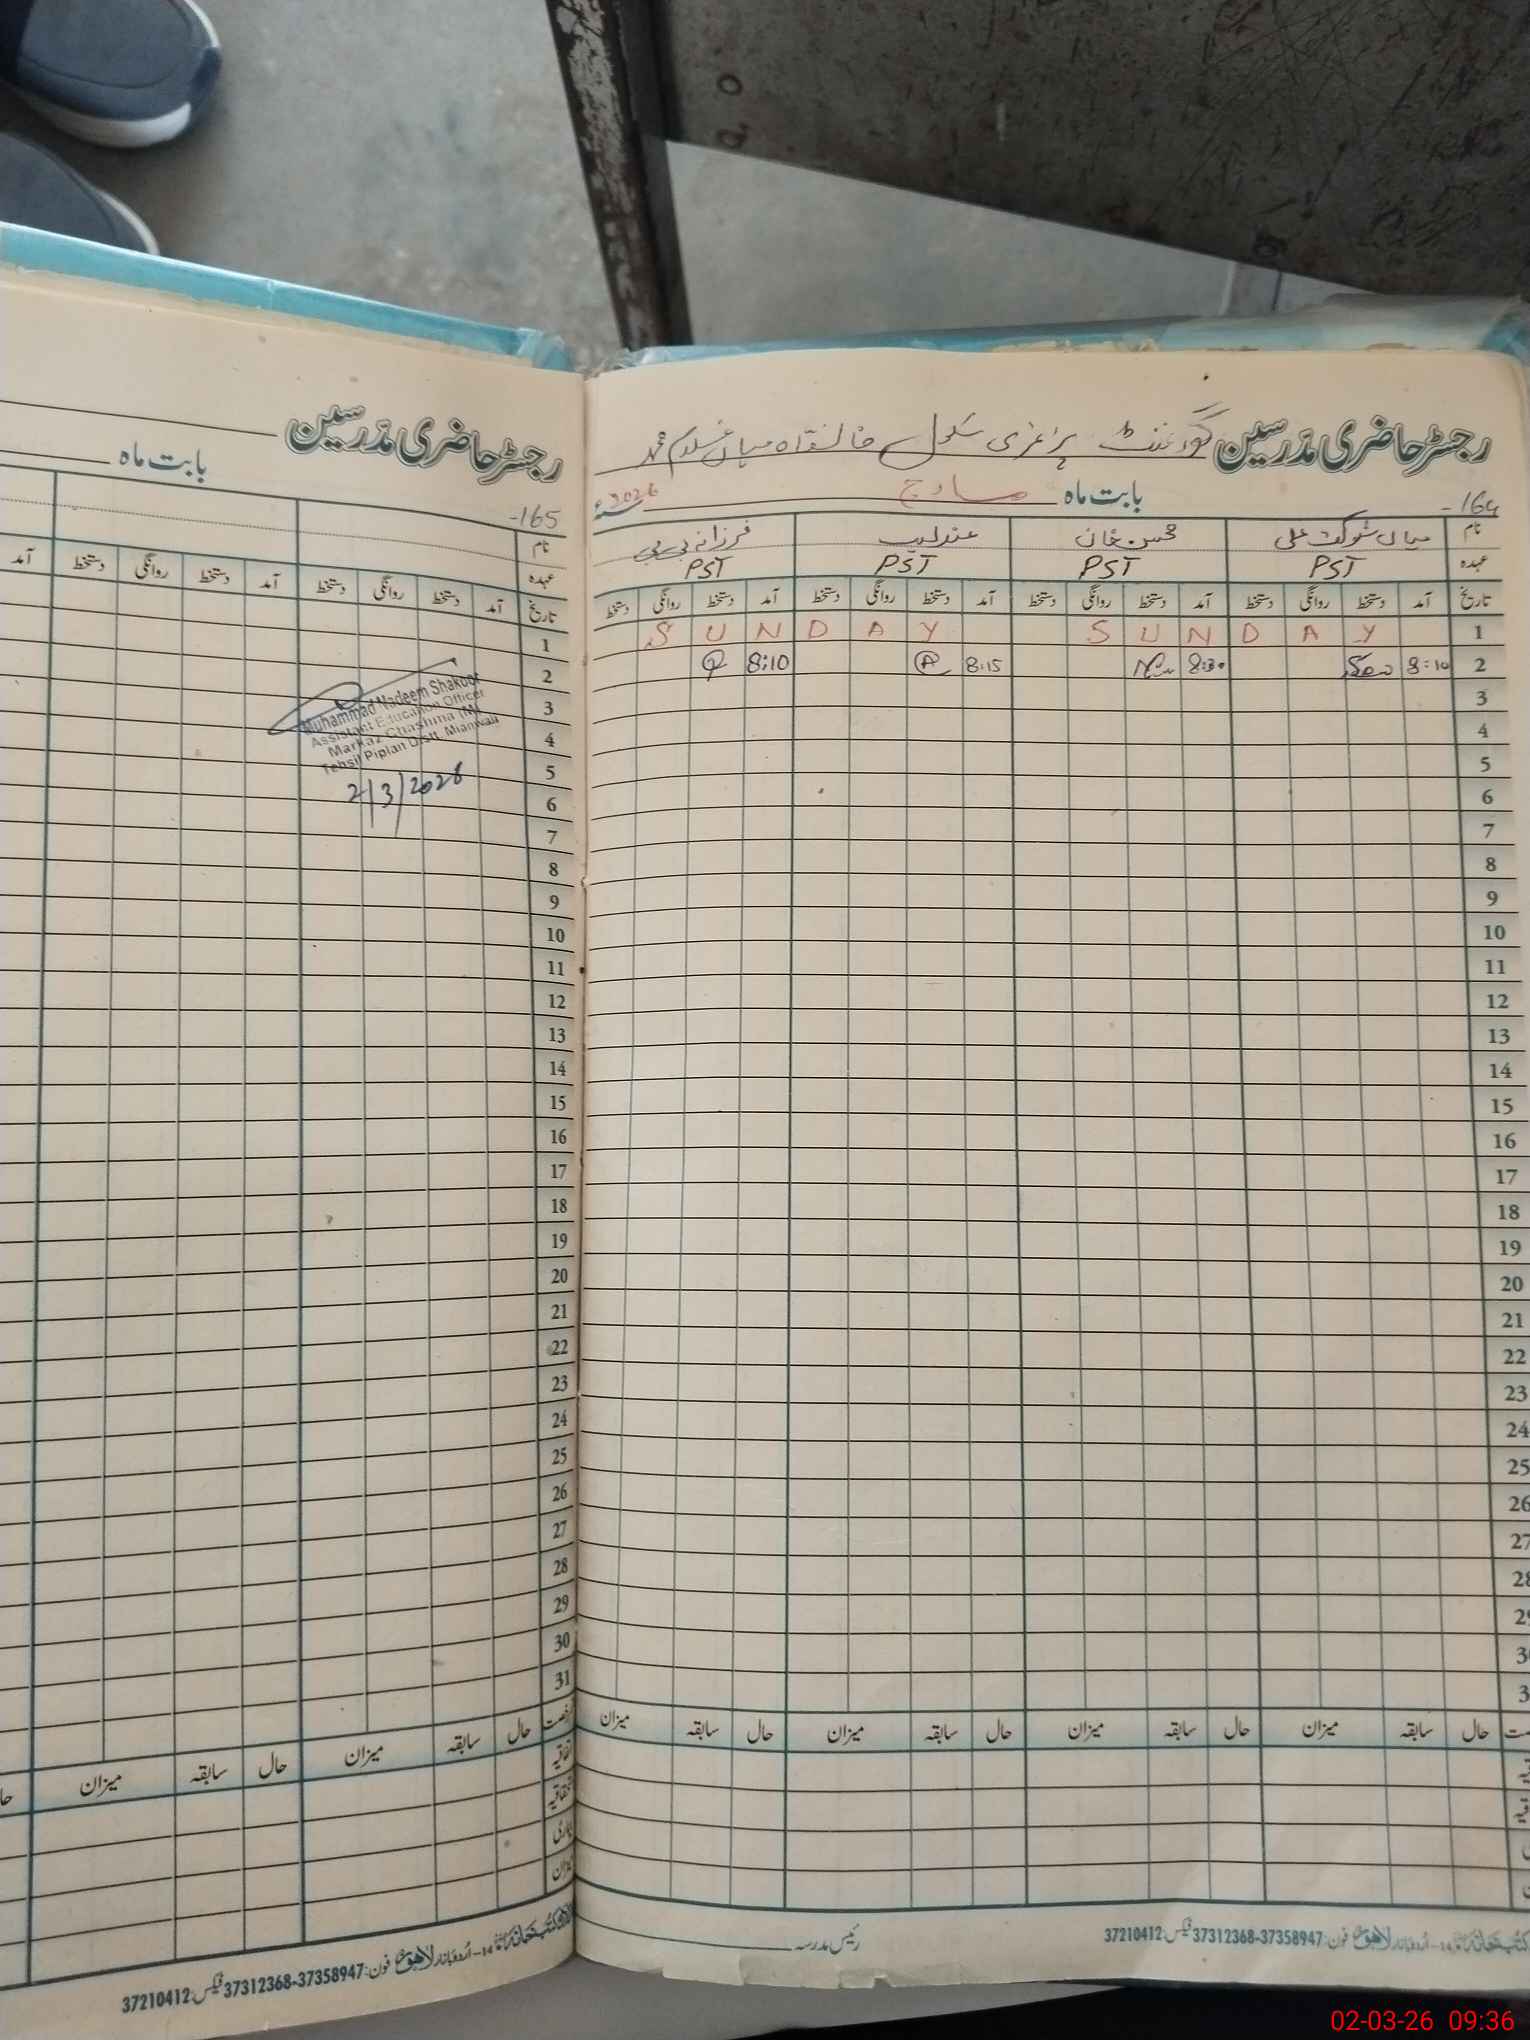 رجسٹر حاضری مدرسین گورنمنٹ پرائمری سکول خانقاہ میاں غلام محمد
164-
بابت ماہ مارچ سنہ 2026
نام میاں شوکت علی محسن خان عندلیب فرزانہ بی بی
عہدہ PST PST PST PST
تاریخ آمد دستخط روانگی دستخط آمد دستخط روانگی دستخط آمد دستخط روانگی دستخط آمد دستخط روانگی دستخط
1 S U N D A Y S U N D A Y
2 8:10 8:30 8:15 8:10
3
4
5
6
7
8
9
10
11
12
13
14
15
16
17
18
19
20
21
22
23
24
25
26
27
28
29
30
3
حال سابقہ میزان حال سابقہ میزان حال سابقہ میزان حال سابقہ میزان
رئیس مدرسہ
اردو بازار لاہور فون: 37312368-37358947 فیکس: 37210412
رجسٹر حاضری مدرسین
165-
بابت ماہ
نام
عہدہ
تاریخ آمد دستخط روانگی دستخط آمد دستخط روانگی دستخط آمد
1
2
3
4
5
6
7
8
9
10
11
12
13
14
15
16
17
18
19
20
21
22
23
24
25
26
27
28
29
30
31
Muhammad Nadeem Shakoor
Assistant Education Officer
Markaz Chashma (M)
Tehsil Piplan Distt. Mianwali
2/3/2026
رخصت حال سابقہ میزان حال سابقہ میزان
اتفاقیہ
بیماری
میزان
14- اردو بازار لاہور فون: 37312368-37358947 فیکس: 37210412
02-03-26 09:36